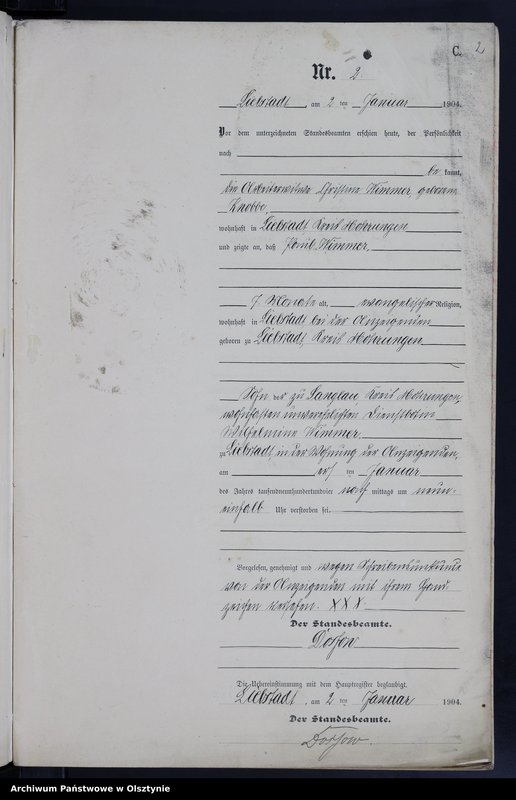 C. 2
Nr. 2.
Liebstadt, am 2 ten Januar 1904.
Vor dem unterzeichneten Standesbeamten erschien heute, der Persönlichkeit
nach
be kannt,
die Arbeiterwitwe Christine Wimmer, geborene
Knobbe
wohnhaft in Liebstadt Kreis Mohrungen
und zeigte an, daß Wimmer,
7 Monate alt, evangelischer Religion,
wohnhaft in Liebstadt bei der Anzeigenden
geboren zu Liebstadt, Kreis Mohrungen
Sohn der zu Kreis Mohrungen,
wohnhaften unverehelichten Dienstbotin
Wilhelmine Wimmer,
zu Liebstadt in der Wohnung der Anzeigenden,
am ersten Januar
des Jahres tausendneunhundertundvier nachmittags um neun-
einhalb Uhr verstorben sei.
Vorgelesen, genehmigt und wegen Schreibensunkunde
von der Anzeigenden mit ihrem Hand-
zeichen versehen. XXX.
Der Standesbeamte.
Dorsow
Die Uebereinstimmung mit dem Hauptregister beglaubigt.
Liebstadt, am 2 ten Januar 1904.
Der Standesbeamte.
Dorsow.
Archiwum Państwowe w Olsztynie